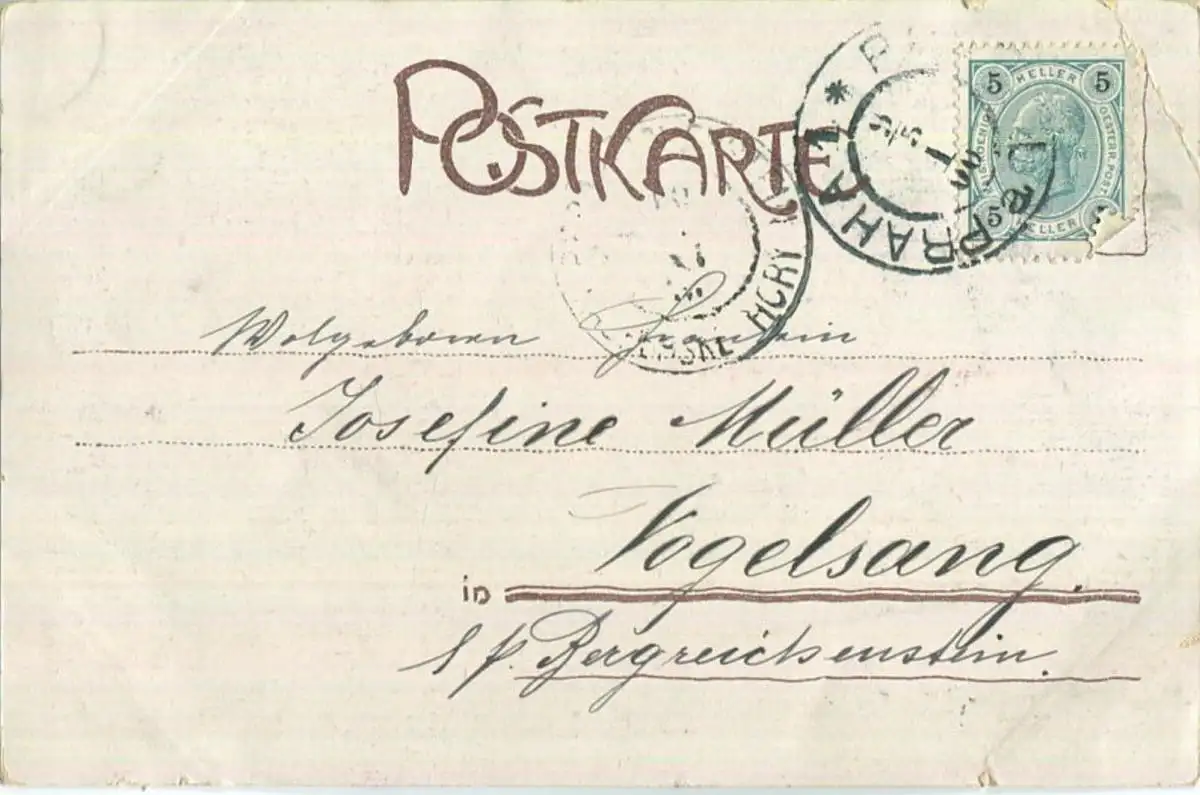 POSTKARTE
PRAHA 1 *
5 HELLER 5
OESTERR. POST
5 HELLER
HORY
Wolgeboren Fräulein
Josefine Müller
in Vogelsang.
Bergreichenstein.